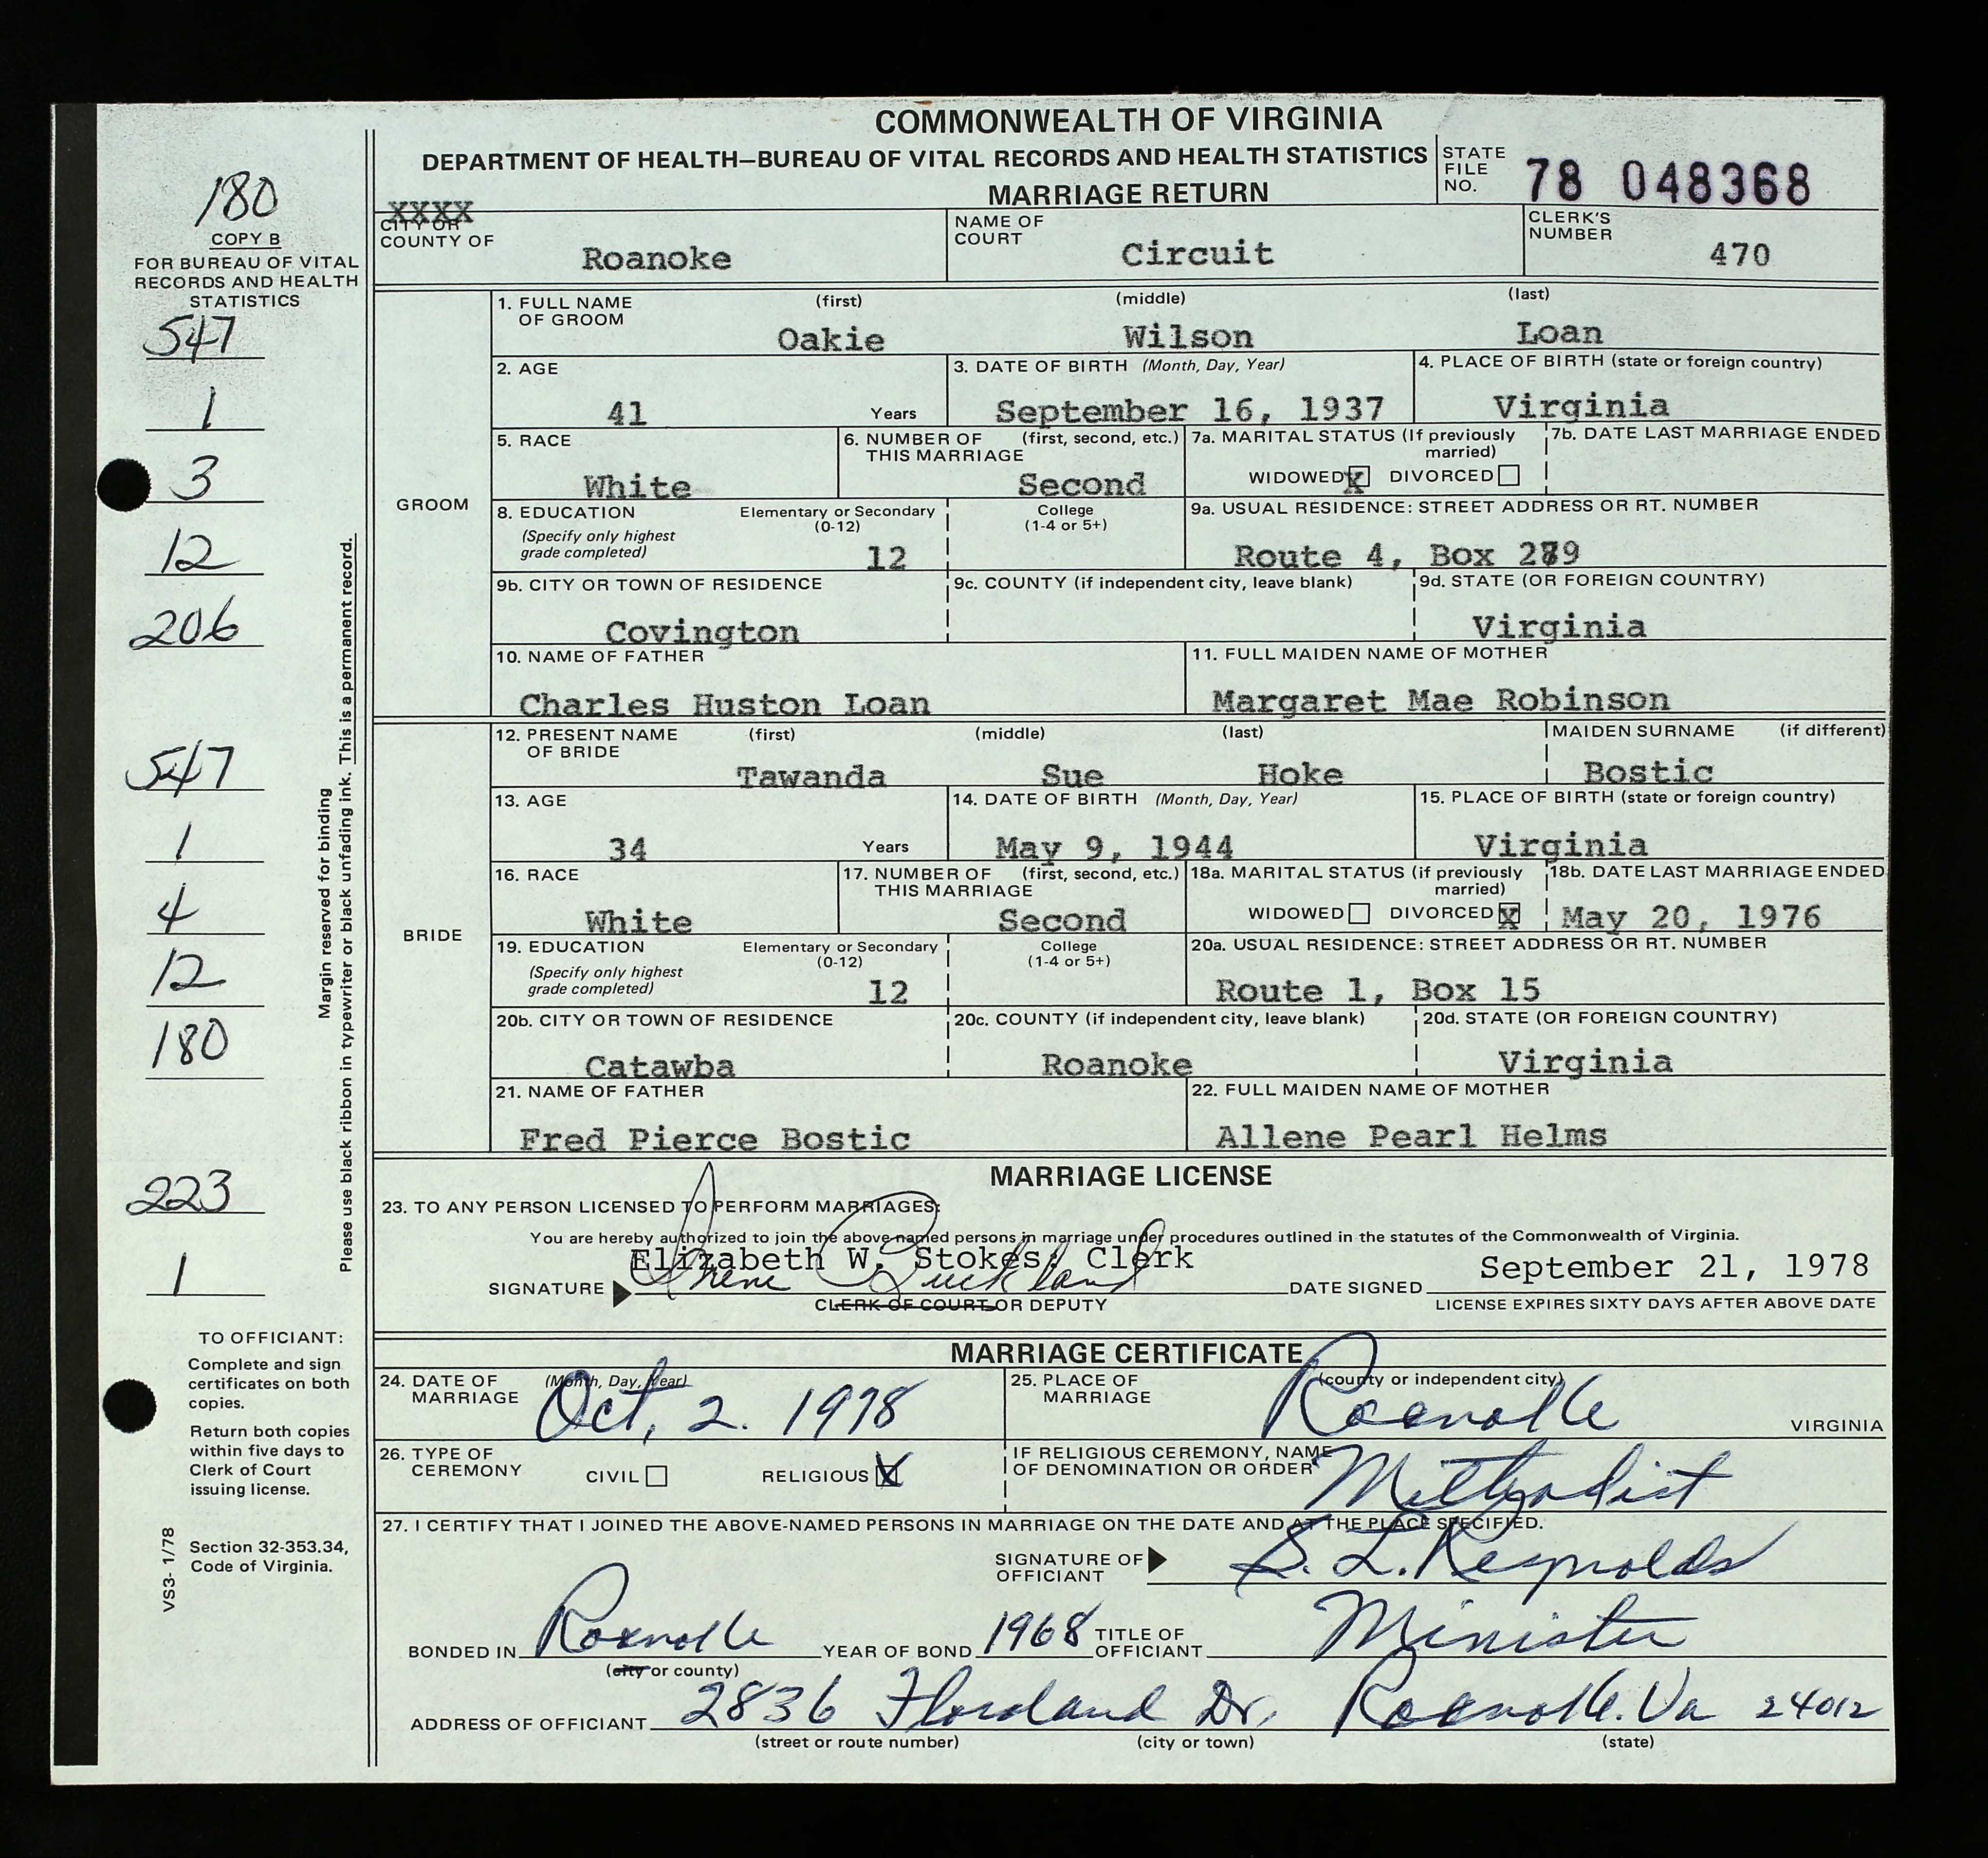 COMMONWEALTH OF VIRGINIA
DEPARTMENT OF HEALTH—BUREAU OF VITAL RECORDS AND HEALTH STATISTICS
MARRIAGE RETURN
STATE FILE NO. 78 048368
180
COPY B
FOR BUREAU OF VITAL
RECORDS AND HEALTH
STATISTICS
547
1
3
12
206
547
1
4
12
180
223
1
Margin reserved for binding
Please use black ribbon in typewriter or black unfading ink. This is a permanent record.
TO OFFICIANT:
Complete and sign
certificates on both
copies.
Return both copies
within five days to
Clerk of Court
issuing license.
Section 32-353.34,
Code of Virginia.
VS3- 1/78
XXXX
CITY OR
COUNTY OF Roanoke
NAME OF COURT Circuit
CLERK'S NUMBER 470
GROOM
1. FULL NAME OF GROOM (first) (middle) (last)
Oakie Wilson Loan
2. AGE 41 Years
3. DATE OF BIRTH (Month, Day, Year) September 16, 1937
4. PLACE OF BIRTH (state or foreign country) Virginia
5. RACE White
6. NUMBER OF THIS MARRIAGE (first, second, etc.) Second
7a. MARITAL STATUS (If previously married) WIDOWED X DIVORCED
7b. DATE LAST MARRIAGE ENDED
8. EDUCATION (Specify only highest grade completed) Elementary or Secondary (0-12) 12 College (1-4 or 5+)
9a. USUAL RESIDENCE: STREET ADDRESS OR RT. NUMBER Route 4, Box
9b. CITY OR TOWN OF RESIDENCE Covington
9c. COUNTY (if independent city, leave blank)
9d. STATE (OR FOREIGN COUNTRY) Virginia
10. NAME OF FATHER Charles Huston Loan
11. FULL MAIDEN NAME OF MOTHER Margaret Mae Robinson
BRIDE
12. PRESENT NAME OF BRIDE (first) (middle) (last) MAIDEN SURNAME (if different)
Tawanda Sue Hoke Bostic
13. AGE 34 Years
14. DATE OF BIRTH (Month, Day, Year) May 9, 1944
15. PLACE OF BIRTH (state or foreign country) Virginia
16. RACE White
17. NUMBER OF THIS MARRIAGE (first, second, etc.) Second
18a. MARITAL STATUS (if previously married) WIDOWED DIVORCED X
18b. DATE LAST MARRIAGE ENDED May 20, 1976
19. EDUCATION (Specify only highest grade completed) Elementary or Secondary (0-12) 12 College (1-4 or 5+)
20a. USUAL RESIDENCE: STREET ADDRESS OR RT. NUMBER Route 1, Box 15
20b. CITY OR TOWN OF RESIDENCE Catawba
20c. COUNTY (if independent city, leave blank) Roanoke
20d. STATE (OR FOREIGN COUNTRY) Virginia
21. NAME OF FATHER Fred Pierce Bostic
22. FULL MAIDEN NAME OF MOTHER Allene Pearl Helms
MARRIAGE LICENSE
23. TO ANY PERSON LICENSED TO PERFORM MARRIAGES:
You are hereby authorized to join the above named persons in marriage under procedures outlined in the statutes of the Commonwealth of Virginia.
Elizabeth W. Stokes, Clerk
SIGNATURE Irene Buckland DATE SIGNED September 21, 1978
CLERK OF COURT OR DEPUTY
LICENSE EXPIRES SIXTY DAYS AFTER ABOVE DATE
MARRIAGE CERTIFICATE
24. DATE OF MARRIAGE (Month, Day, Year) Oct, 2. 1978
25. PLACE OF MARRIAGE (county or independent city) Roanoke VIRGINIA
26. TYPE OF CEREMONY CIVIL RELIGIOUS X
IF RELIGIOUS CEREMONY, NAME OF DENOMINATION OR ORDER Methodist
27. I CERTIFY THAT I JOINED THE ABOVE-NAMED PERSONS IN MARRIAGE ON THE DATE AND AT THE PLACE SPECIFIED.
SIGNATURE OF OFFICIANT S. L. Reynolds
BONDED IN Roanoke YEAR OF BOND 1968 TITLE OF OFFICIANT Minister
(city or county)
ADDRESS OF OFFICIANT 2836 Dr, Roanoke. Va 24012
(street or route number) (city or town) (state)